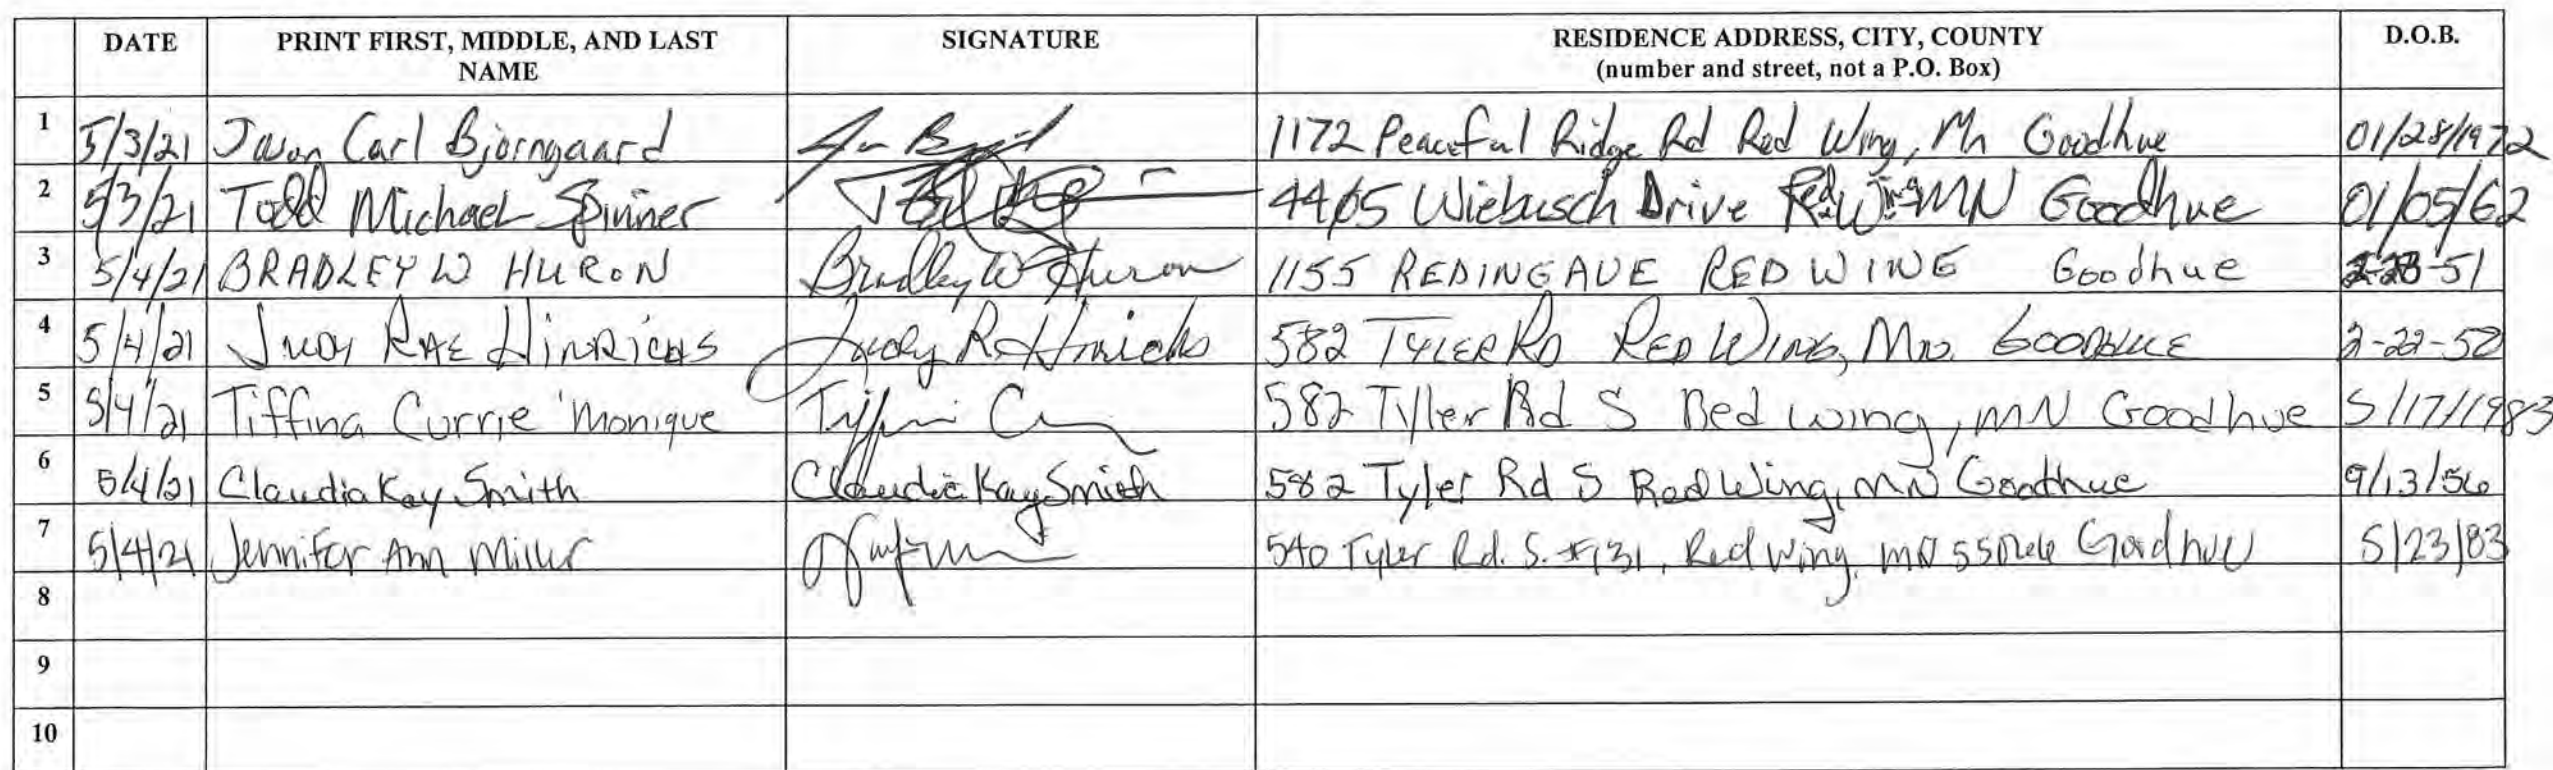 DATE PRINT FIRST, MIDDLE, AND LAST NAME SIGNATURE RESIDENCE ADDRESS, CITY, COUNTY (number and street, not a P.O. Box) D.O.B.
1 5/3/21 Jason Carl Bjorngaard 1172 Peaceful Ridge Rd Red Wing, Mn Goodhue 01/28/1972
2 5/3/21 Todd Michael Spinner Wiebusch Drive Red Wing MN Goodhue 01/05/62
3 5/4/21 BRADLEY W HURON Bradley W Huron 1155 REDING AVE RED WING Goodhue
4 5/4/21 JUDY RAE HINRICHS Judy R Hinrichs 582 TYLER RD RED WING, MN. GOODHUE
5 5/4/21 Tiffina Currie Monique 582 Tyler Rd S Red Wing, MN Goodhue 5/17/1983
6 5/4/21 Claudia Kay Smith Claudia Kay Smith 582 Tyler Rd S Red Wing, MN Goodhue 9/13/56
7 5/4/21 Jennifer Ann Miller 540 Tyler Rd. S. #131, Red Wing, MN Goodhue 5/23/83
8
9
10